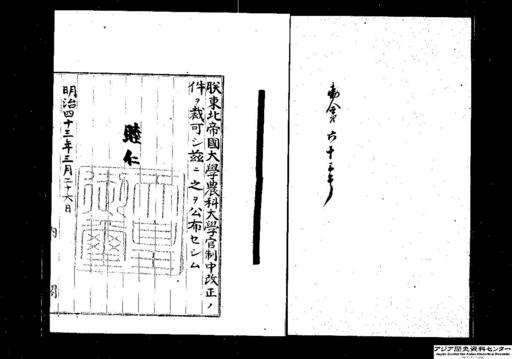 勅令第六十三号
朕東北帝國大學農科大學官制中改正ノ
件ヲ裁可シ茲ニ之ヲ公布セシム
睦仁
天皇御璽
明治四十三年三月二十六日
内閣
アジア歴史資料センター
Japan Center for Asian Historical Records